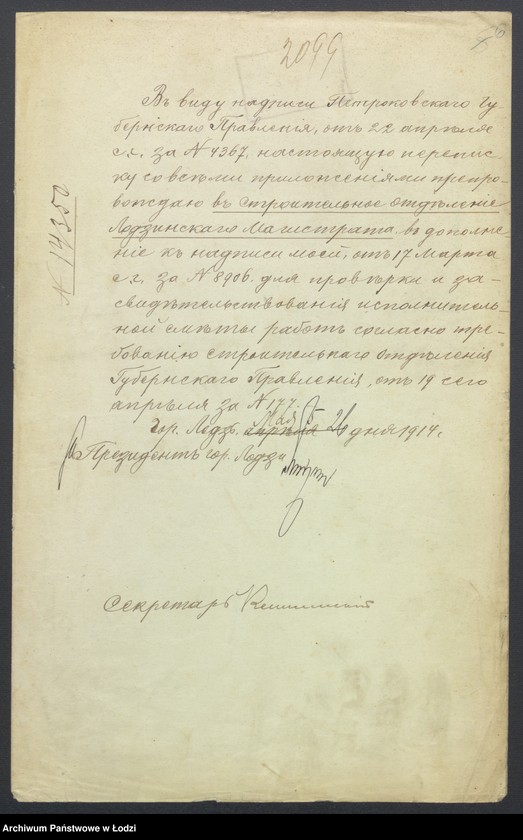 2099
Въ виду надписи Петроковскаго Гу
бернскаго Правленія, отъ 22 апрѣля
с.г. за N 4367, настоящую перепис-
ку со всѣми приложеніями препро-
вождаю въ Строительное отдѣленіе
Лодзинскаго Магистрата въ дополне-
ніе къ надписи моей, отъ 17 Марта
с.г. за N 8906 для провѣрки и за-
свидѣтельствованія исполнитель-
ной смѣты работъ согласно тре-
бованію Строительнаго Отдѣленія
Губернскаго Правленія, отъ 19 сего
апрѣля за N 177.
Мая 5
Гор. Лодзь. апрѣля 26 дня 1914 г.
Президентъ гор. Лодзи
Секретарь
N 14350
Archiwum Państwowe w Łodzi